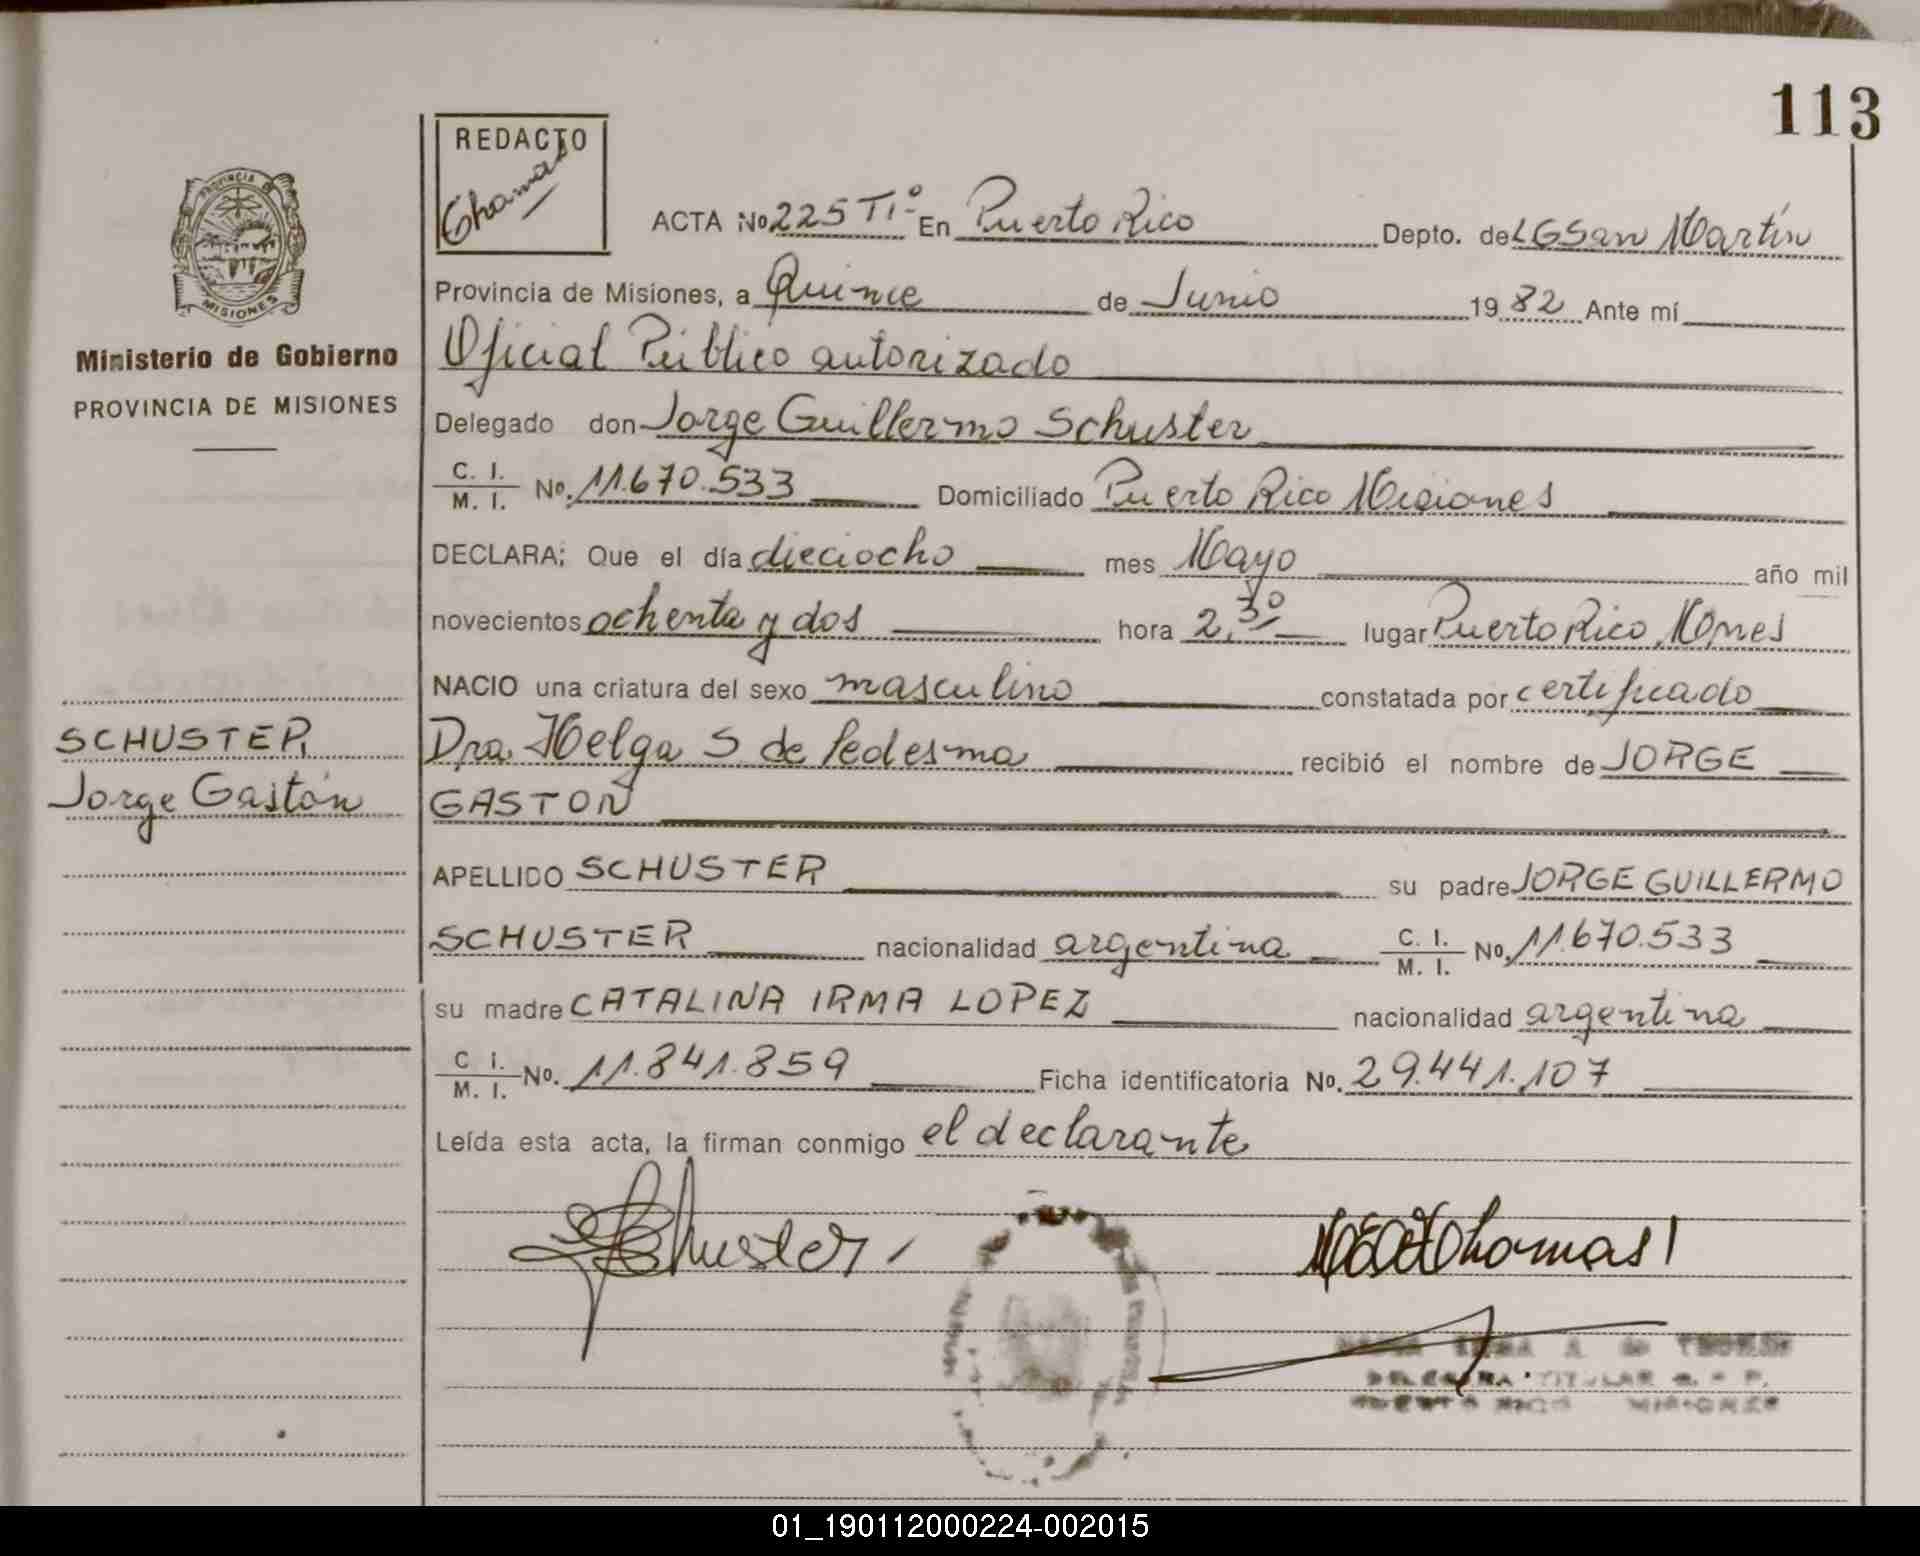 113
REDACTO
Thomas
ACTA No 225 TIº En Puerto Rico Depto. de LGSan Martín
PROVINCIA DE
MISIONES
Provincia de Misiones, a Quince de Junio 1982 Ante mí
Ministerio de Gobierno
Oficial Público autorizado
PROVINCIA DE MISIONES
Delegado don Jorge Guillermo Schuster
C. I. M. I. No. 11.670.533 Domiciliado Puerto Rico Misiones
DECLARA; Que el día dieciocho mes Mayo año mil
novecientos ochenta y dos hora 2,30 lugar Puerto Rico Mnes
NACIO una criatura del sexo masculino constatada por certificado
SCHUSTER,
Dra. Helga S de Ledesma recibió el nombre de JORGE
Jorge Gastón
GASTON
APELLIDO SCHUSTER su padre JORGE GUILLERMO
SCHUSTER nacionalidad argentina C. I. M. I. No. 11.670.533
su madre CATALINA IRMA LOPEZ nacionalidad argentina
C I. M. I. No. 11.841.859 Ficha identificatoria No. 29.441.107
Leída esta acta, la firman conmigo el declarante
Schuster
Thomas
DELEGADA TITULAR R. P.
PUERTO RICO MISIONES
01_190112000224-002015